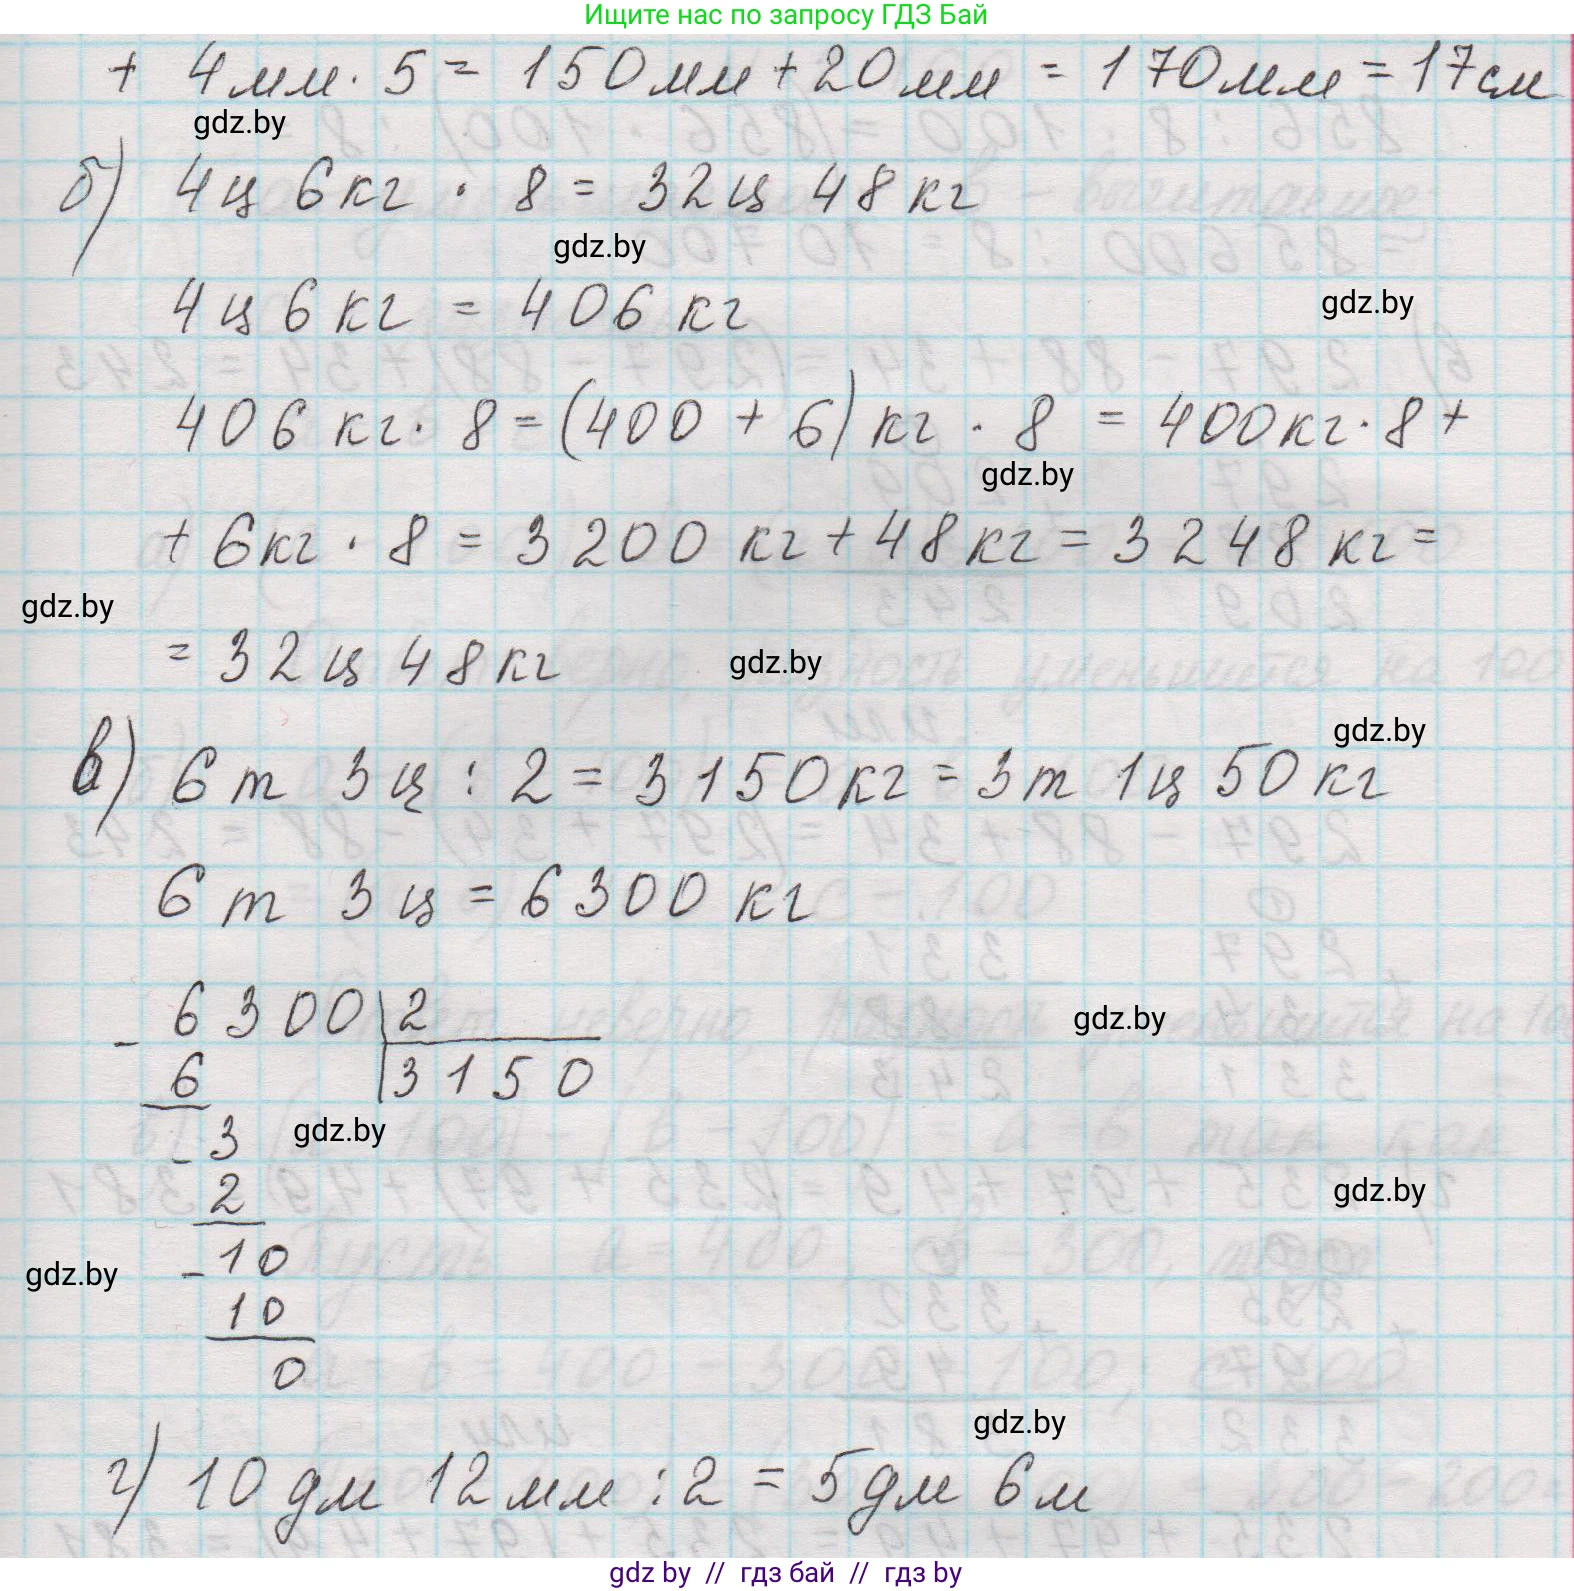 Ищите нас по запросу ГДЗ Бай
+ 4 мм · 5 = 150 мм + 20 мм = 170 мм = 17 см
gdz.by
б) 4 ц 6 кг · 8 = 32 ц 48 кг
gdz.by
4 ц 6 кг = 406 кг
gdz.by
406 кг · 8 = (400 + 6) кг · 8 = 400 кг · 8 +
gdz.by
+ 6 кг · 8 = 3 200 кг + 48 кг = 3 248 кг =
gdz.by
= 32 ц 48 кг
gdz.by
gdz.by
в) 6 т 3 ц : 2 = 3 150 кг = 3 т 1 ц 50 кг
6 т 3 ц = 6 300 кг
- 6 3 0 0 | 2
gdz.by
6 | 3 1 5 0
- 3
gdz.by
2
gdz.by
- 1 0
gdz.by
1 0
0
gdz.by
г) 10 дм 12 мм : 2 = 5 дм 6 м
gdz.by // гдз бай // гдз by